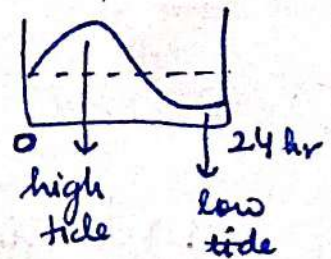 0
24 hr
high
tide
low
tide